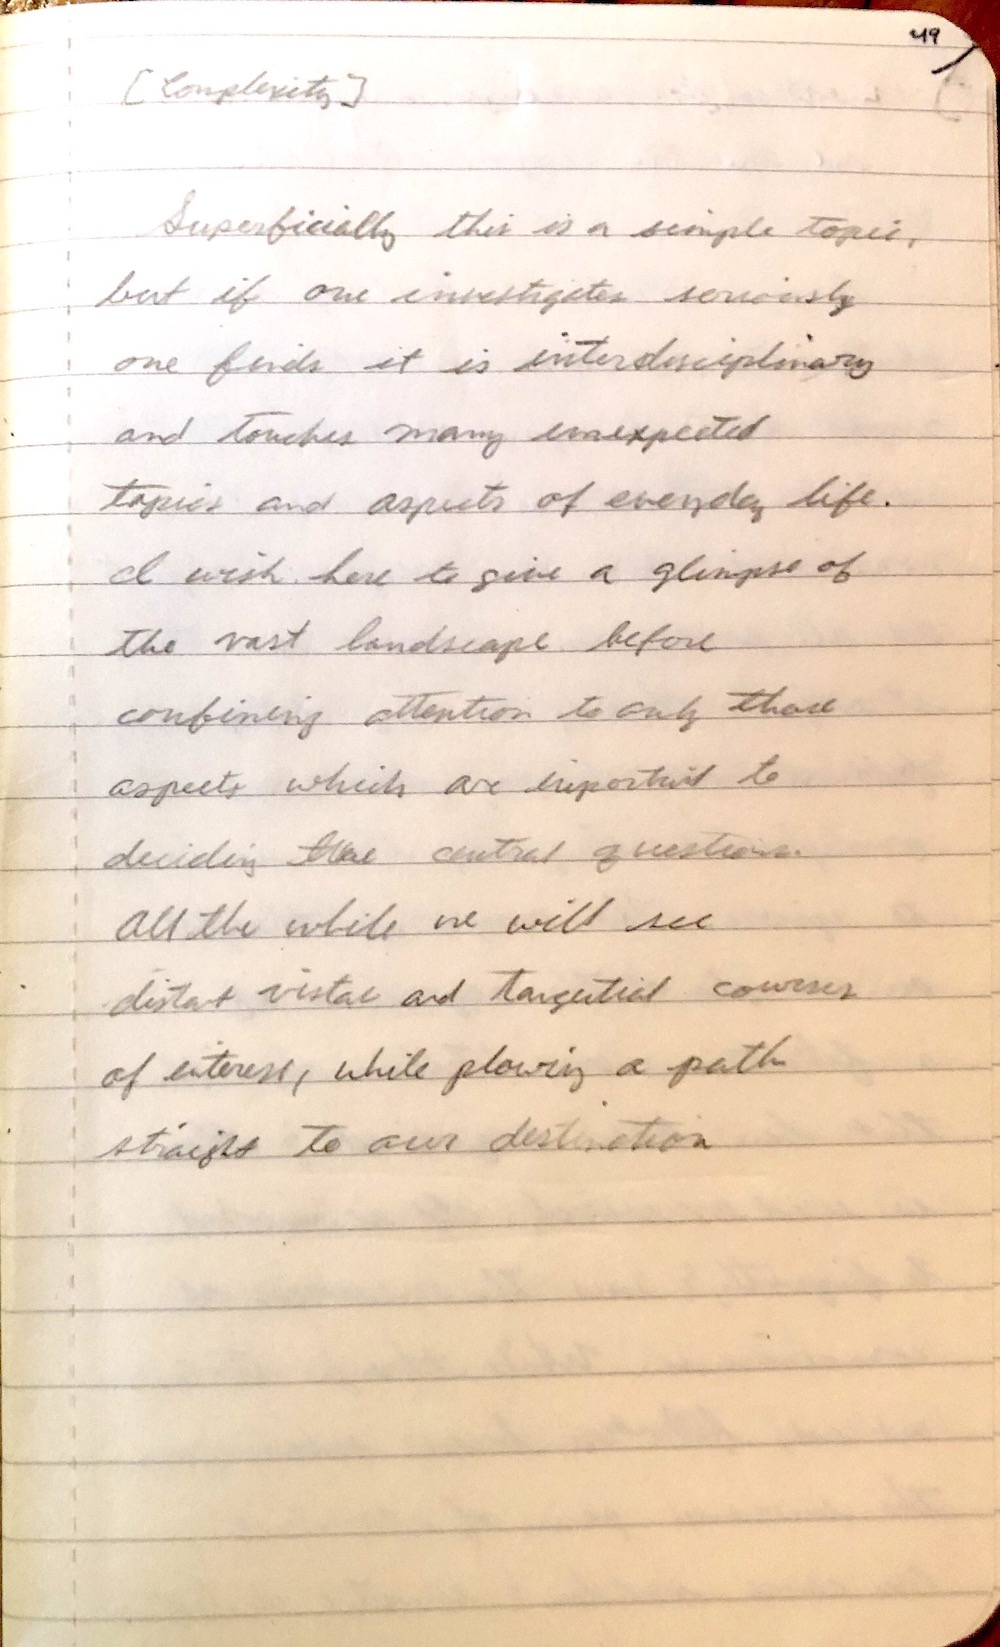 49
[Complexity]
Superficially this is a simple topic,
but if one investigates seriously
one finds it is interdisciplinary
and touches many unexpected
topics and aspects of everyday life.
I wish here to give a glimpse of
the vast landscape before
confining attention to only those
aspects which are important to
deciding the central questions.
All the while we will see
distant vistas and tangential courses
of interest, while plowing a path
straight to our destination